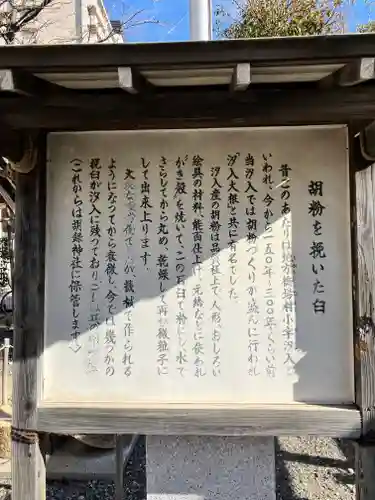 胡粉を挽いた臼
昔このあたりは地方橋場村小字汐入と
いわれ、今から二五〇年〜三〇〇年くらい前
当汐入では胡粉づくりが盛んに行われ
「汐入大根」と共に有名でした。
汐入産の胡粉は品質極上で人形、おしろい
絵具の材料、能面仕上げ、元結などに使われ
かき殻を焼いて、この石臼で粉にし、水で
さらしてから丸め、乾燥して再び微粒子に
して出来上ります。
大変な手作業でしたが、機械で作られる
ようになってから衰微し、今では幾つかの
挽臼が汐入に残っており
(これからは胡録神社に保管します。)